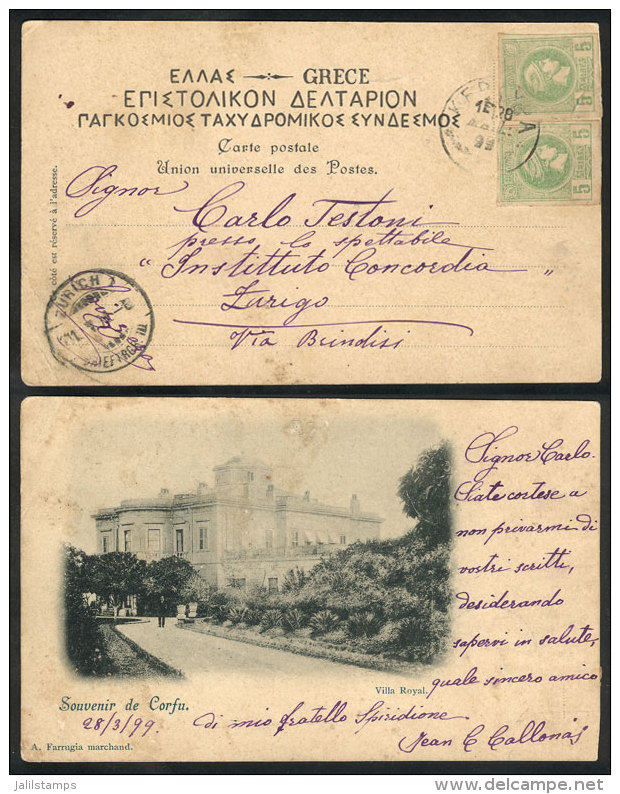 ΕΛΛΑΣ GRECE
ΕΠΙΣΤΟΛΙΚΟΝ ΔΕΛΤΑΡΙΟΝ
ΠΑΓΚΟΣΜΙΟΣ ΤΑΧΥΔΡΟΜΙΚΟΣ ΣΥΝΔΕΣΜΟΣ
Carte postale
Union universelle des Postes.
5 5
5 5
côté est réservé à l'adresse.
Signor
Carlo Testoni
presso lo spettabile
"Instittuto Concordia"
Zurigo
Via Brindisi
ZÜRICH
Signor Carlo.
Siate cortese a
non privarmi di
vostri scritti,
desiderando
sapervi in salute,
quale sincero amico
di mio fratello Spiridione
Jean C Callonás
Villa Royal.
Souvenir de Corfu.
28/3/99
A. Farrugia marchand.
jalilstamps
delcampe.net